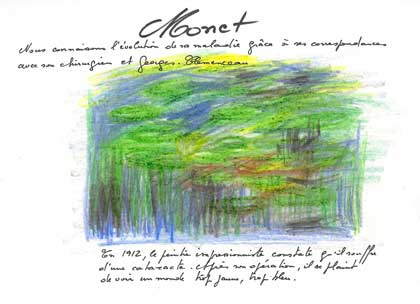 Monet
Nous connaissons l'évolution de sa maladie grâce à ses correspondances
avec son chirurgien et Georges. Clémenceau
En 1912, le peintre impressionniste constate qu'il souffre
d'une cataracte. Après son opération, il se plaint
de voir un monde trop jaune, trop bleu.